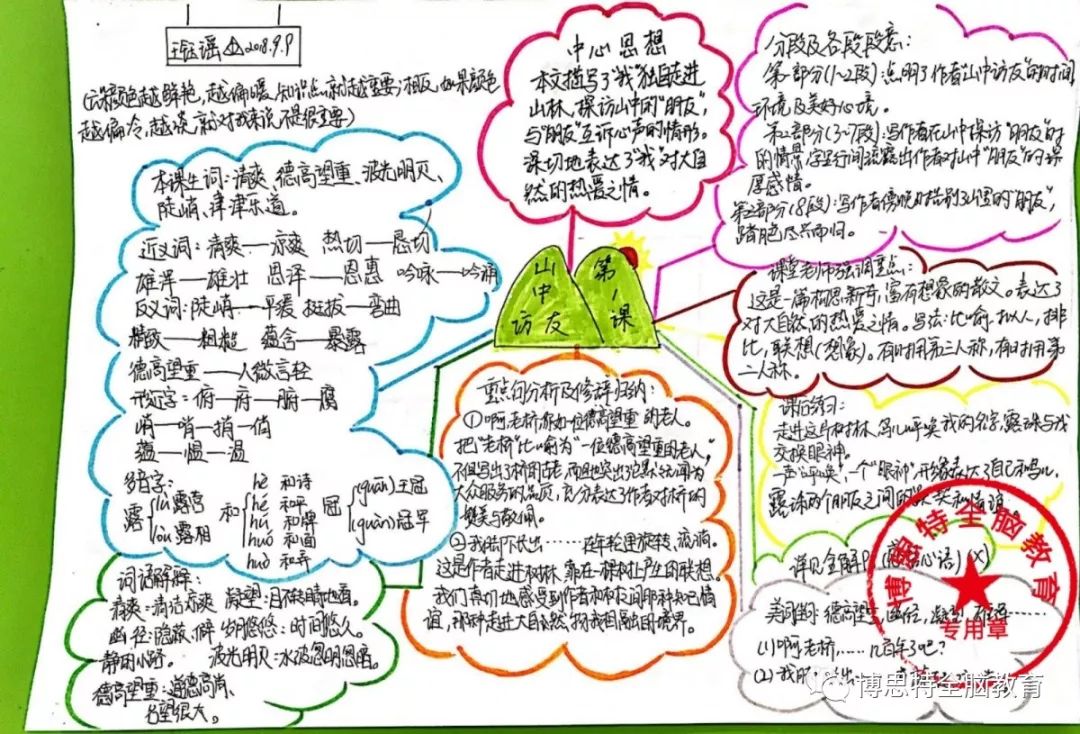 王钰谣 2018.9.9
越偏冷,越淡,就对我来说不是很重要)
本课生词:清爽、德高望重、波光明灭、
陡峭、津津乐道。
近义词:清爽——凉爽 热切——恳切
雄浑——雄壮 恩泽——恩惠 吟咏——吟诵
反义词:陡峭——平缓 挺拔——弯曲
精致——粗糙 蕴含——暴露
德高望重——人微言轻
形近字:俯—府—腑—腐
峭—哨—捎—俏
蕴—愠—温
多音字:
露 lù 露营
lòu 露相
和 hè 和诗
hé 和平
hú 和牌
huó 和面
huò 和弄
冠 (guān)王冠
(guàn)冠军
词语解释:
清爽:清洁凉爽 凝望:目不转睛地看。
幽径:隐蔽、僻 岁月悠悠:时间悠久。
静的小路。 波光明灭:水波忽明忽暗。
德高望重:道德高尚、
名望很大。
中心思想
本文描写了“我”独自走进
山林,探访山中的“朋友”,
与“朋友”互诉心声的情形。
深切地表达了“我”对大自
然的热爱之情。
山中访友
第1课
重点句分析及修辞归纳:
①啊,老桥,你如一位德高望重的老人。
把“老桥”比喻为“一位德高望重的老人”,
不但写出了桥的古老,而且也突出它默默无闻为
大众服务的品质,充分表达了作者对桥的
赞美与敬佩。
②我脚下长出……在年轮里旋转、流淌。
这是作者走进树林,靠在一棵树上产生的联想。
我们真切地感受到作者和树友间那种知己情
谊,那种走进大自然,物我相融的境界。
分段及各段段意:
第一部分(1~2段):点明了作者“山中访友”的时间
环境及美好心境。
部分(3~7段):写作者在山中探访“朋友”时
的情景,字里行间流露出作者对山中“朋友”的深
厚感情。
部分(8段):写作者傍晚时告别了山里的“朋友”,
踏月色尽兴而归。
课堂老师强调重点:
这是一篇构思新奇,富有想象的散文。表达了
对大自然的热爱之情。写法:比喻、拟人、排
比,联想(想象)。有时用第三人称,有时用第
二人称。
课后练习:
走进这片树林,鸟儿呼唤我的名字,露珠与我
交换眼神。
一声“呼唤”,一个“眼神”,形象表达了自己和鸟儿
露珠两个朋友之间的
详见全解P
美词佳句:德高望重、
(1)啊,老桥,……几百年了吧?
(2)我脚
博思特全脑教育
专用章
博思特全脑教育